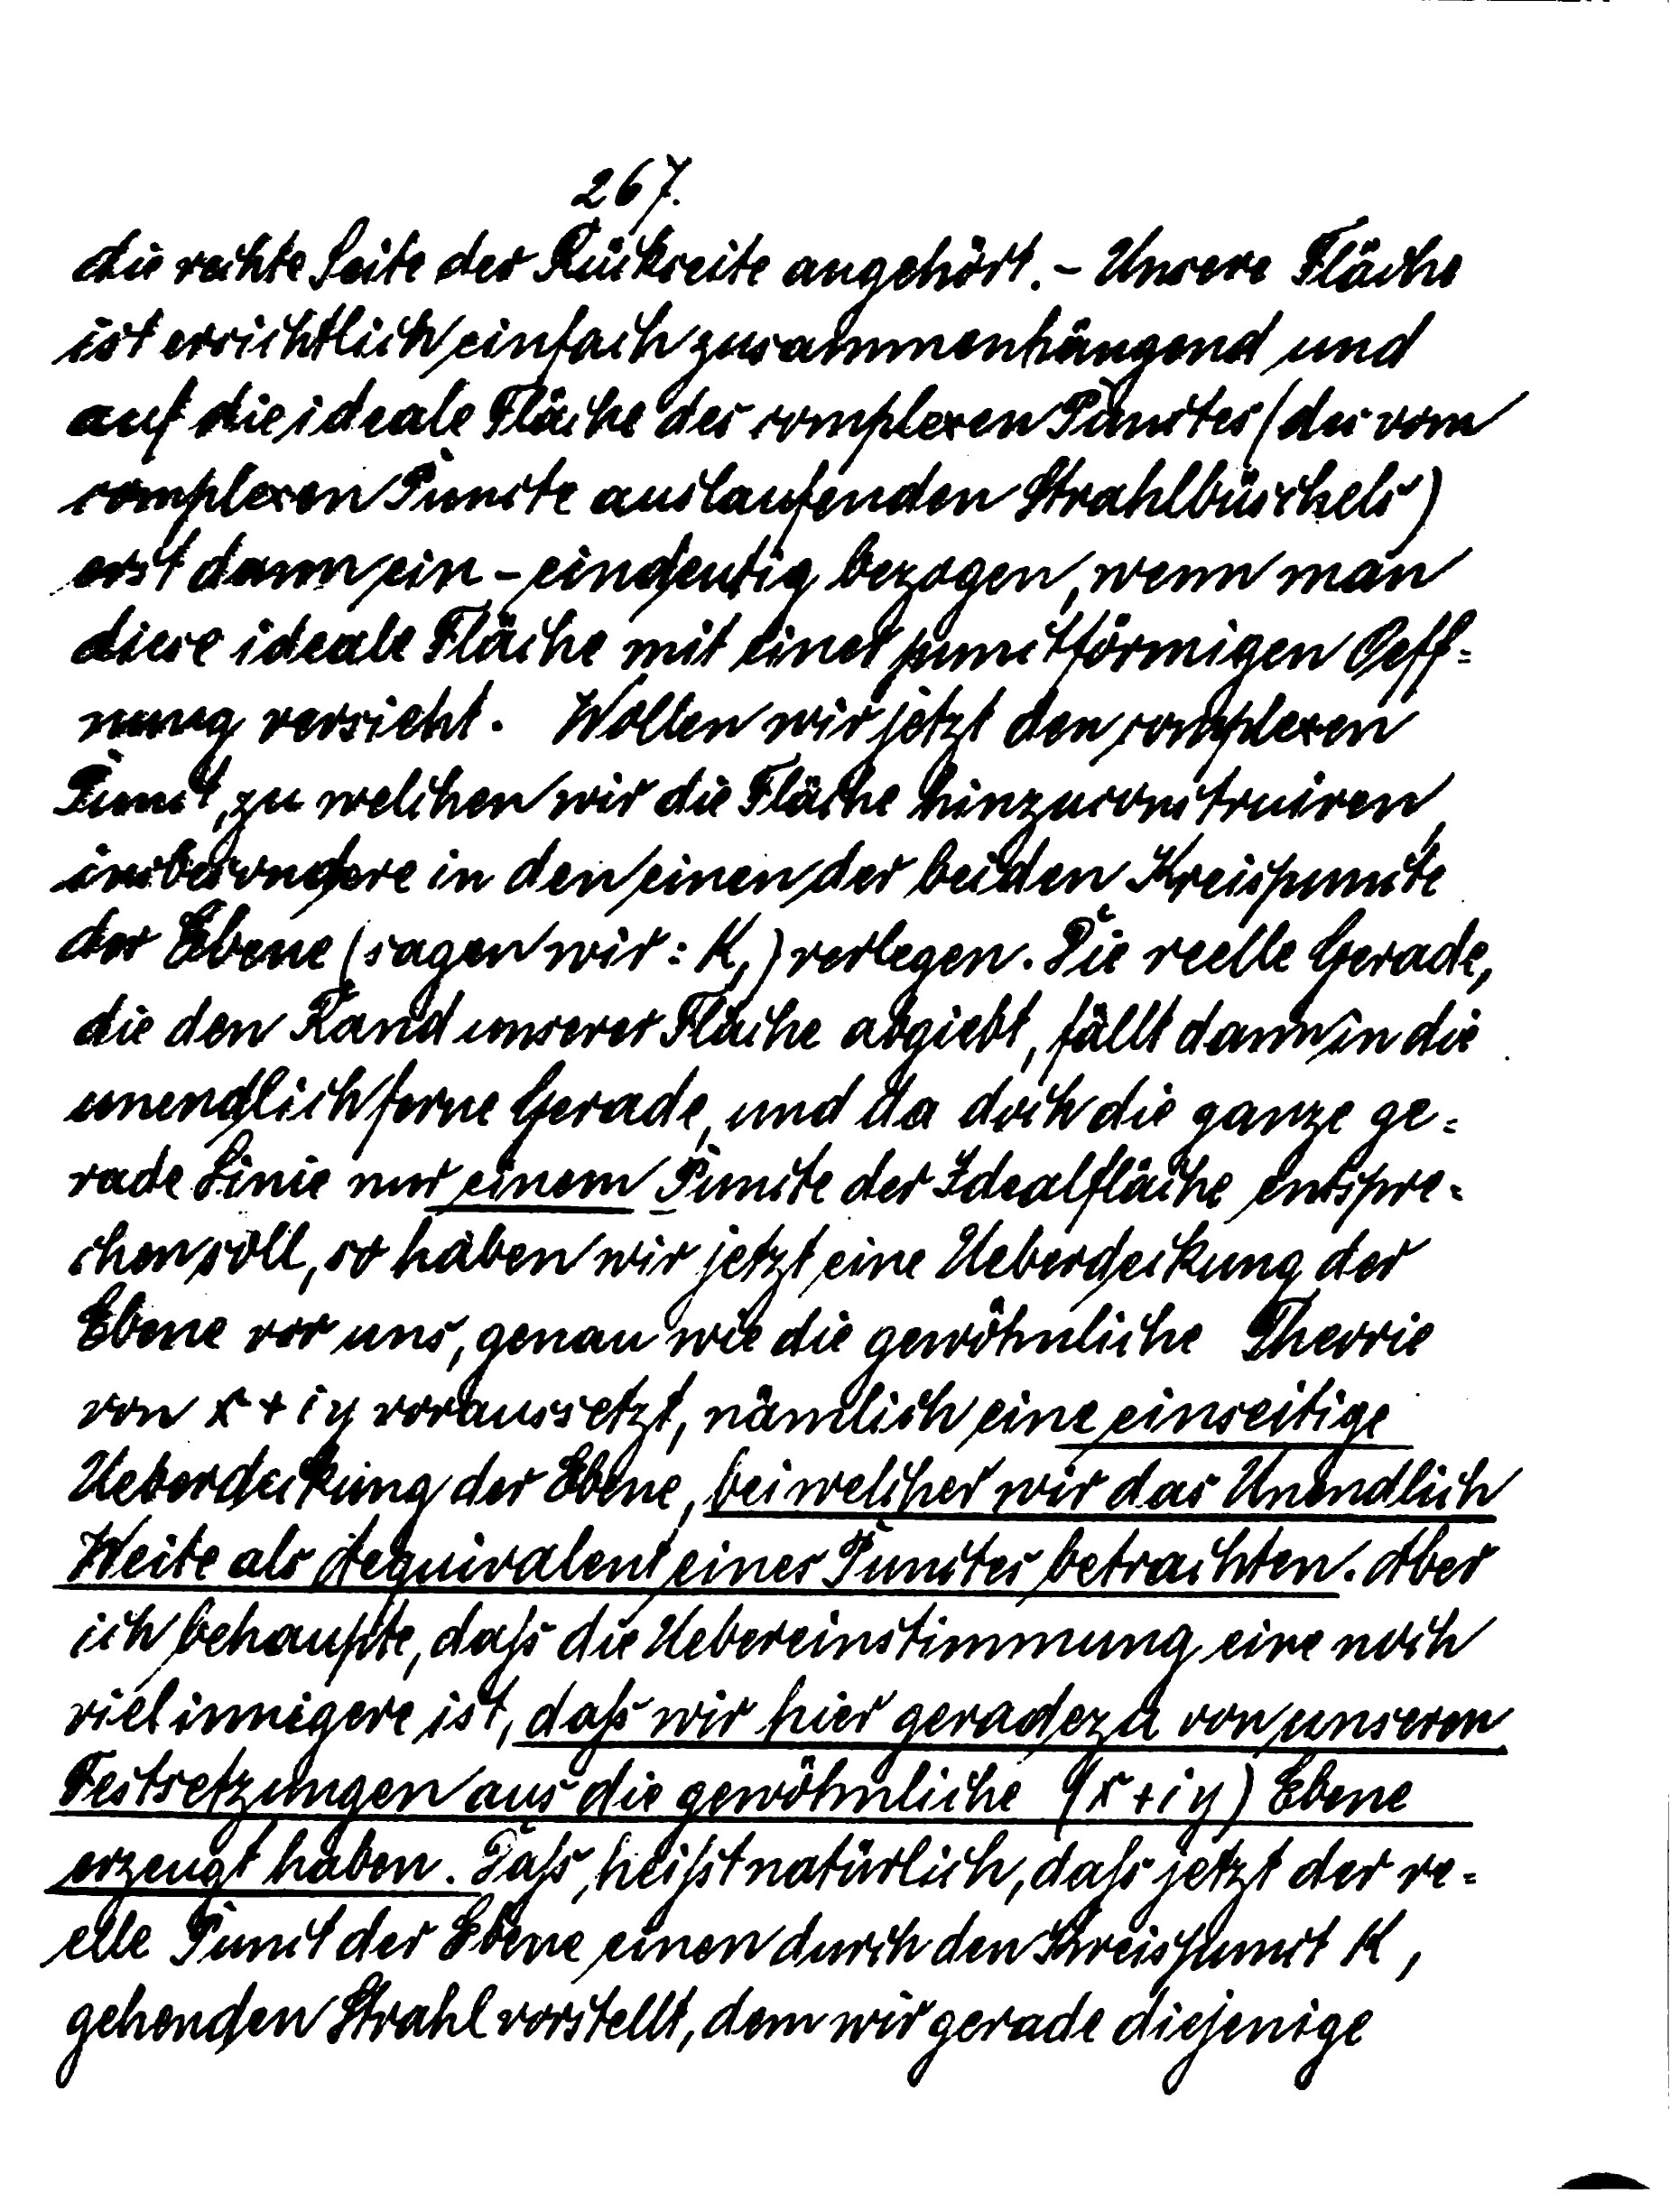 267.
die rechte Seite der Rückseite angehört. – Unsere Fläche
ist ersichtlich einfach zusammenhängend und
auf die ideale Fläche des complexen Punctes (des vom
complexen Puncte auslaufenden Strahlbüschels)
erst dann ein-eindeutig bezogen, wenn man
diese ideale Fläche mit einer punctförmigen Oeff=
nung versieht. Wollen wir jetzt den complexen
Punct, zu welchen wir die Fläche hinzuconstruiren,
insbesondere in den einen der beiden Kreispuncte
der Ebene (sagen wir: K,) verlegen. Die reelle Gerade,
die den Rand unserer Fläche abgiebt, fällt dann in die
unendlich ferne Gerade, und da doch die ganze ge=
rade Linie nur einem Puncte der Idealfläche entspre=
chen soll, so haben wir jetzt eine Ueberdeckung der
Ebene vor uns, genau wie die gewöhnliche Theorie
von x + iy voraussetzt, nämlich eine einseitige
Ueberdeckung der Ebene, bei welcher wir das Unendlich
Weite als Aequivalent eines Punctes betrachten. Aber
ich behaupte, daſs die Uebereinstimmung eine noch
viel innigere ist, daſs wir hier geradezu von unseren
Festsetzungen aus die gewöhnliche (x + iy) Ebene
erzeugt haben. Daſs, heiſst natürlich, daſs jetzt der re=
elle Punct der Ebene einen durch den Kreispunct K,
gehenden Strahl vorstellt, dem wir gerade diejenige